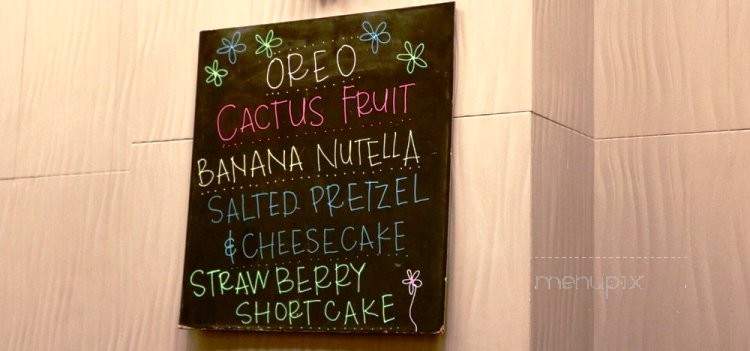 OREO
CACTUS FRUIT
BANANA NUTELLA
SALTED PRETZEL
& CHEESECAKE
STRAWBERRY
SHORTCAKE
menupix